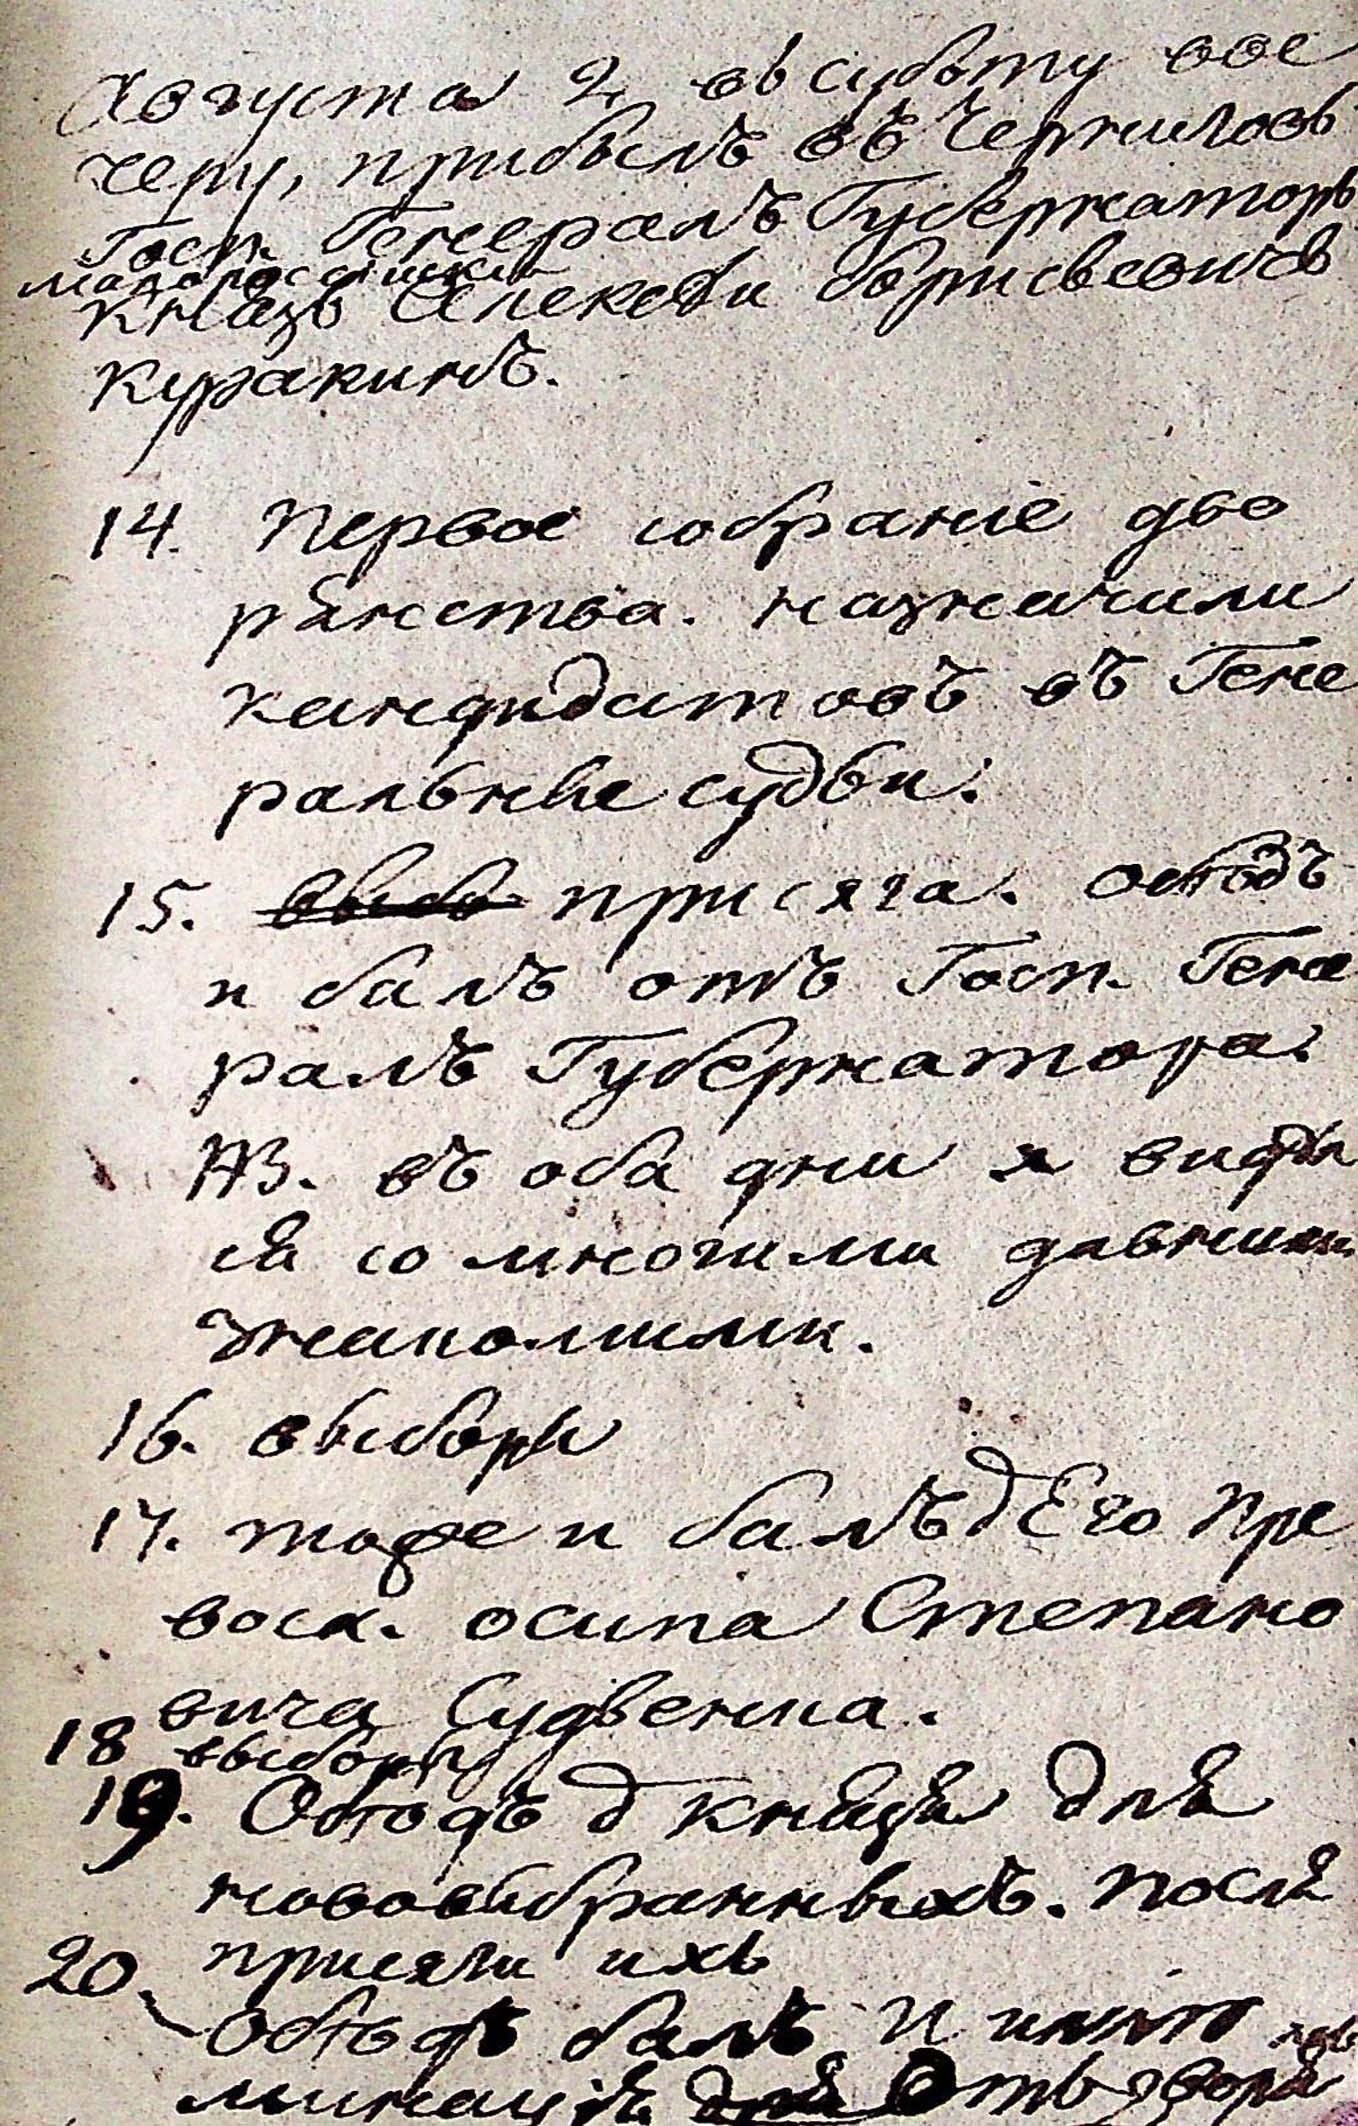 Августа 2 въ суботу вве
черу, прибылъ въ Черниговъ
Госп. Генералъ Губернаторъ
малороссійскій
Князь Алексѣй борисьевичъ
Куракинъ.
14. Первое собраніе дво
рянства. назначили
кандидатовъ въ Гене
ральные судьи.
15. выбо присяга. обѣдъ
и балъ отъ Госп. Гене
ралъ Губернатора.
NB. въ оба дни я видѣл
ся со многими давними
знакомими.
16. выборы
17. тоже и балъ у Его Пре
восх. осипа Степано
вича Судіенка.
18 выборы
19. Обѣдъ у князя для
нововыбранныхъ. после
присяги ихъ
20. Обѣдъ балъ и иллю
минація для отъ дворя